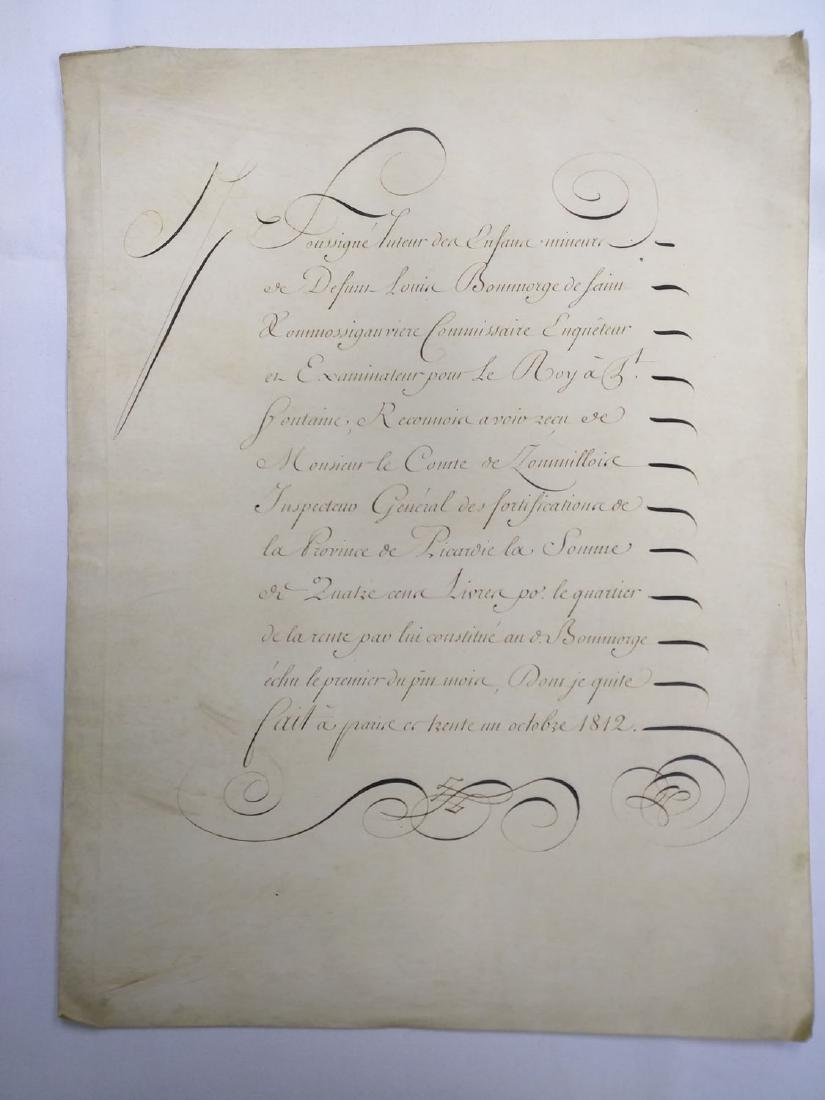 Je Soussigné Tuteur des Enfans mineurs
de Defunt Louis Bommorge de Saint
Commissaire Enquêteur
et Examinateur pour Le Roy à St.
Fontaine, Reconnois avoir reçu de
Monsieur le Comte de
Inspecteur Général des fortifications de
la Province de Picardie la Somme
de Quatre cens Livres po.r le quartier
de la rente par lui constitué au d. Bommorge
échu le premier du pnt mois, Dont je quite
fait à paris ce trente un octobre 1812.